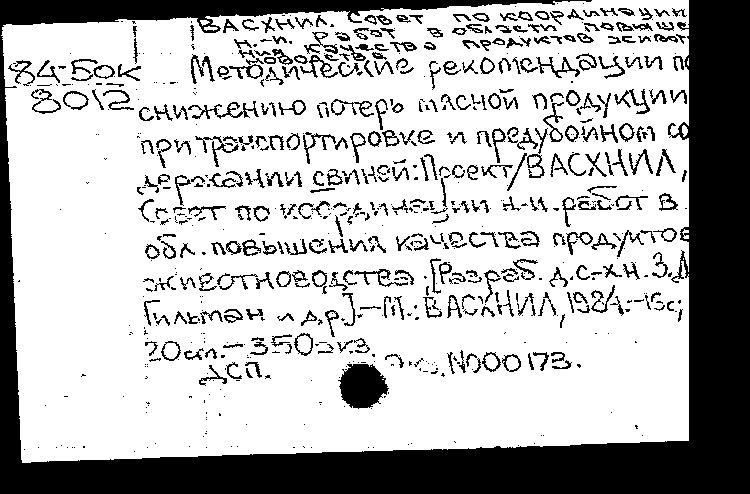 ВАСХНИЛ. Совет по координации
н.-и. работ в области повыше
ния качества продуктов живот
новодства
84-5ок Методические рекомендации по
8012 снижению потерь мясной продукции
при транспортировке и предубойном со
держании свиней: Проект/ВАСХНИЛ,
Совет по координации н.-и. работ в
обл. повышения качества продуктов
животноводства. [Разраб. д.с.-х.н. З.Д.
Гильман и др.].-М.: ВАСХНИЛ, 1984.-16с;
20см.-350экз.
ДСП. Экз. N000173.